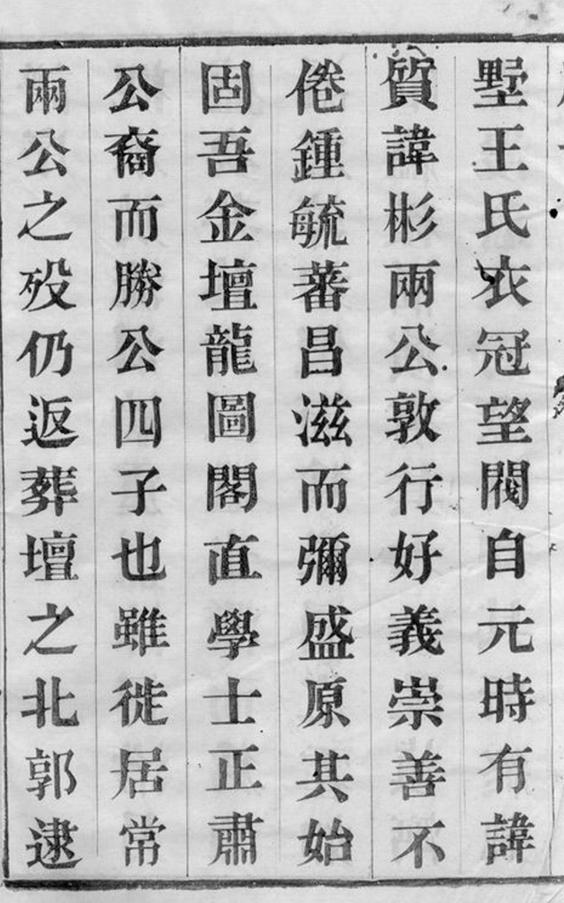 墅王氏衣冠望閥自元時有諱
質諱彬兩公敦行好義崇善不
倦鍾毓蕃昌滋而彌盛原其始
固吾金壇龍圖閣直學士正肅
公裔而勝公四子也雖徙居常
兩公之殁仍返葬壇之北郭逮